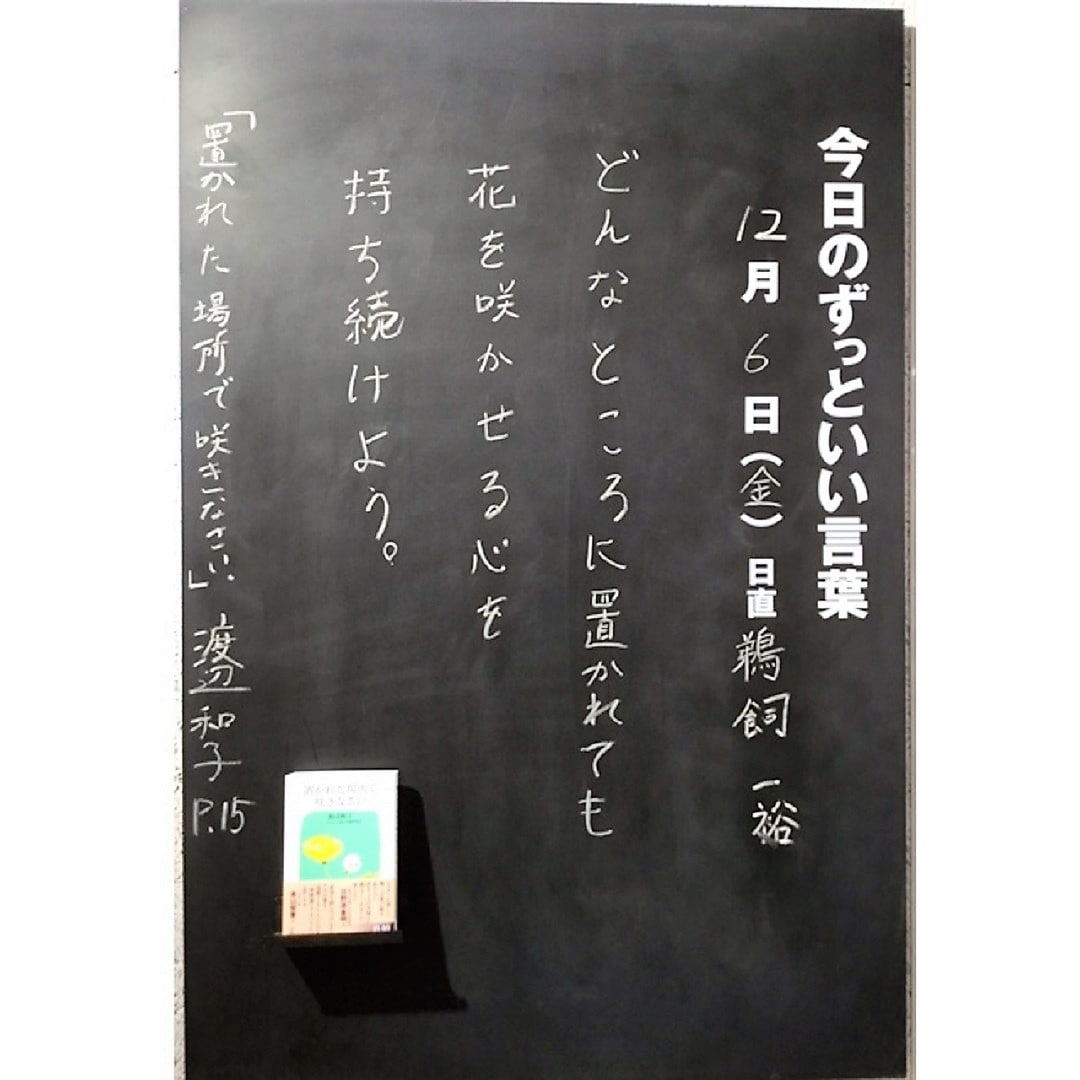 今日のずっといい言葉
12月6日(金)日直 鵜飼 一裕
どんなところに置かれても
花を咲かせる心を
持ち続けよう。
「置かれた場所で咲きなさい」 渡辺和子 P.15
置かれた場所で
咲きなさい